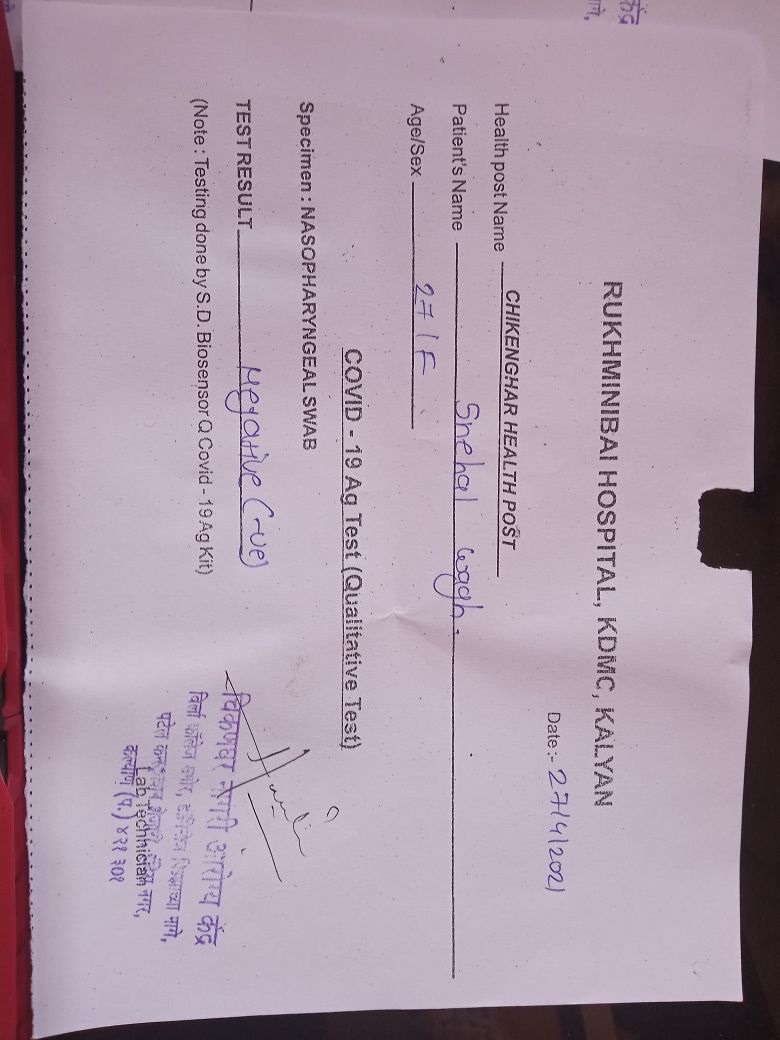 केंद्र
RUKHMINIBAI HOSPITAL, KDMC, KALYAN
Date :- 27/4/2021
Health post Name CHIKENGHAR HEALTH POST
Patient's Name Snehal wagh.
Age/Sex 27/F
COVID - 19 Ag Test (Qualitative Test)
Specimen : NASOPHARYNGEAL SWAB
TEST RESULT Negative (-ve)
(Note : Testing done by S.D. Biosensor Q Covid - 19 Ag Kit)
चिकणघर नागरी आरोग्य केंद्र
बिर्ला कॉलेज समोर, मागे,
पटेल नगर,
Lab Techhician
कल्याण (प.) ४२१ ३०१